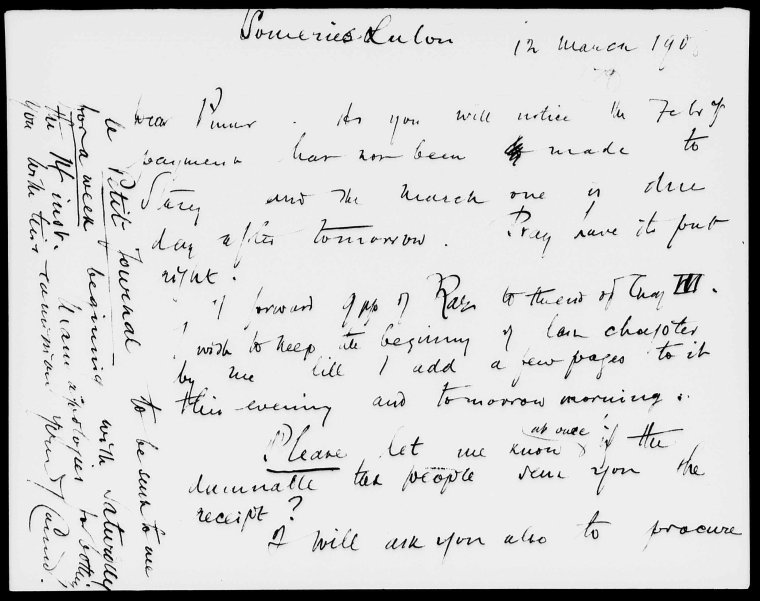 Someries Luton 12 March 190
Dear Pinker. As you will notice the Febry
payment has not been made to
and the March one is due
day after tomorrow. Pray have it put
right.
I forward 9 pp of Raz to the end of Chap III.
I wish to keep the beginning of last chapter
by me till I add a few pages to it
this evening and tomorrow morning.
Please let me know at once if the
damnable tea people send you the
receipt?
I will ask you also to procure
le Petit Journal to be sent to me
for a week beginning with Saturday
the inst. apologies to bother
you with this commission yours Conrad.